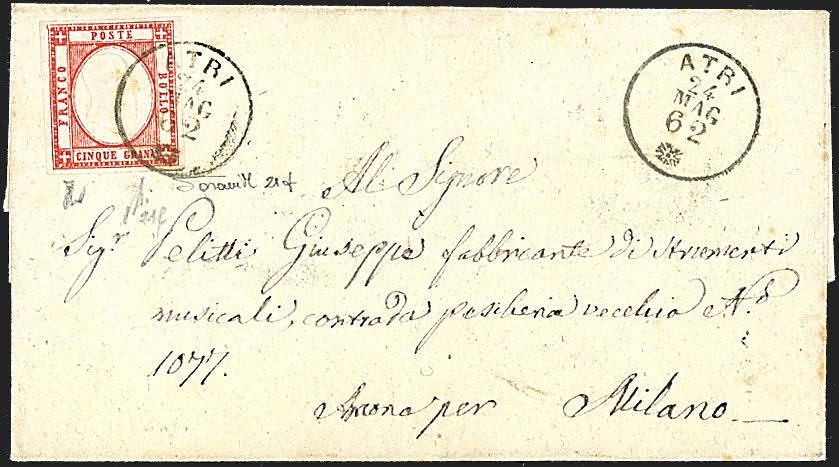 POSTE
FRANCO
BOLLO
CINQUE GRANA
ATRI
24
MAG
62
ATRI
24
MAG
62
Al Signore
Sigr Pelitti Giuseppe fabbricante di strumenti
musicali, contrada pescheria vecchia No
1077.
per Milano